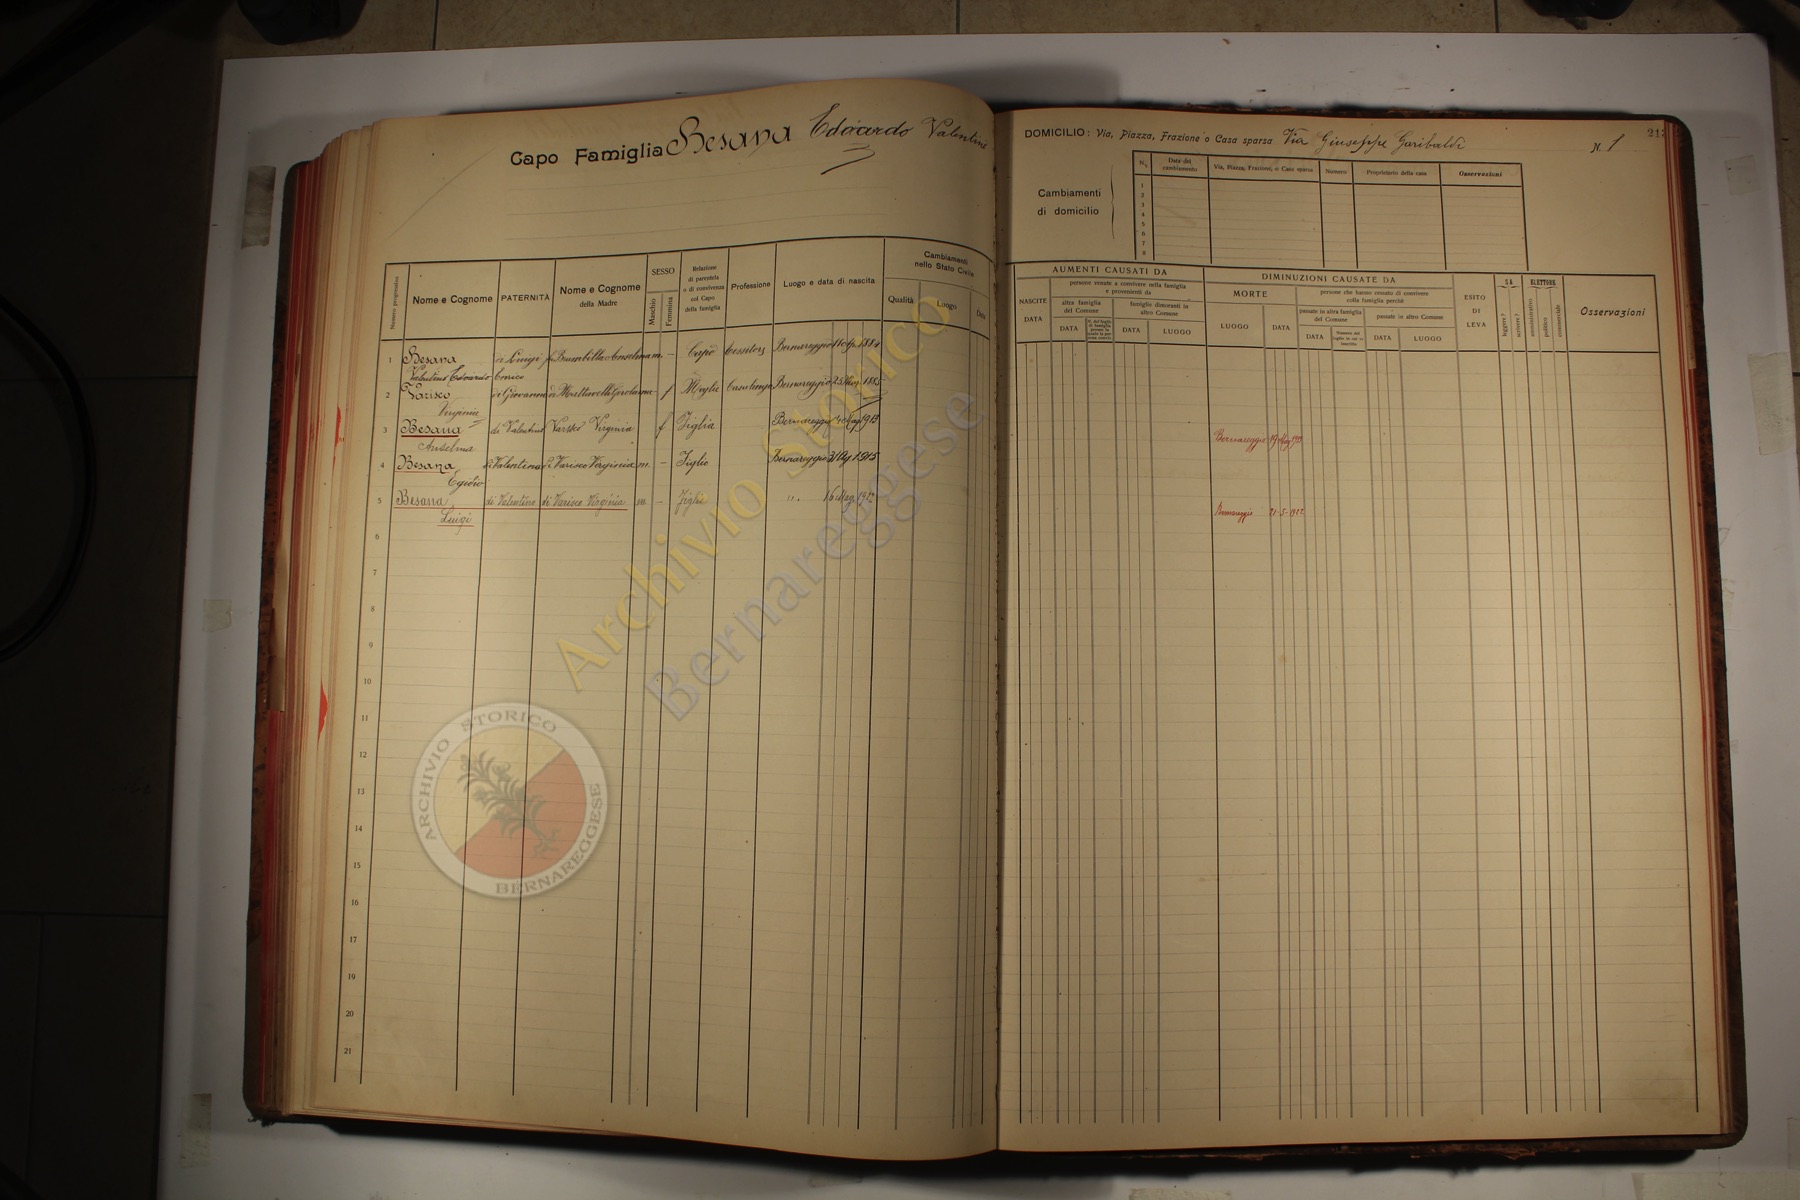 Capo Famiglia Besana Edoardo Valentino
Numero progressivo
Nome e Cognome
PATERNITÀ
Nome e Cognome
della Madre
SESSO
Maschio
Femmina
Relazione
di parentela
o di convivenza
col Capo
della famiglia
Professione
Luogo e data di nascita
Cambiamenti
nello Stato Civile
Qualità
Luogo
Data
1 Besana di Luigi fu Brambilla Anselma m. – Capo Bernareggio 1884
Valentino Edoardo Enrico
2 Varisco di Giovanni f Moglie Casalinga Bernareggio 1885
Virginia
3 Besana di Valentino Varisco Virginia f Figlia Bernareggio 4 Mag 1913
Anselma
4 Besana di Valentino di Varisco Virginia m. – Figlio Bernareggio 1915
Egidio
5 Besana di Valentino di Varisco Virginia m – Figlio „. 16 Mag
Luigi
6
7
8
9
10
11
12
13
14
15
16
17
18
19
20
21
DOMICILIO: Via, Piazza, Frazione o Casa sparsa Via Giuseppe Garibaldi N. 1
21
Cambiamenti
di domicilio
N.
Data del
cambiamento
Via, Piazza, Frazione, o Casa sparsa
Numero
Proprietario della casa
Osservazioni
1
2
3
4
5
6
7
8
AUMENTI CAUSATI DA
NASCITE
DATA
persone venute a convivere nella famiglia
e provenienti da
altra famiglia
del Comune
famiglie dimoranti in
altro Comune
DATA
DATA
LUOGO
DIMINUZIONI CAUSATE DA
MORTE
LUOGO
DATA
persone che hanno cessato di convivere
colla famiglia perchè
passate in altra famiglia
del Comune
passate in altro Comune
DATA
DATA
LUOGO
ESITO
DI
LEVA
SA
leggere?
scrivere?
ELETTORE
amministrativo
politico
commerciale
Osservazioni
Bernareggio
Bernareggio 21-5-1922
Archivio Storico
Bernareggese
ARCHIVIO STORICO
BERNAREGGESE